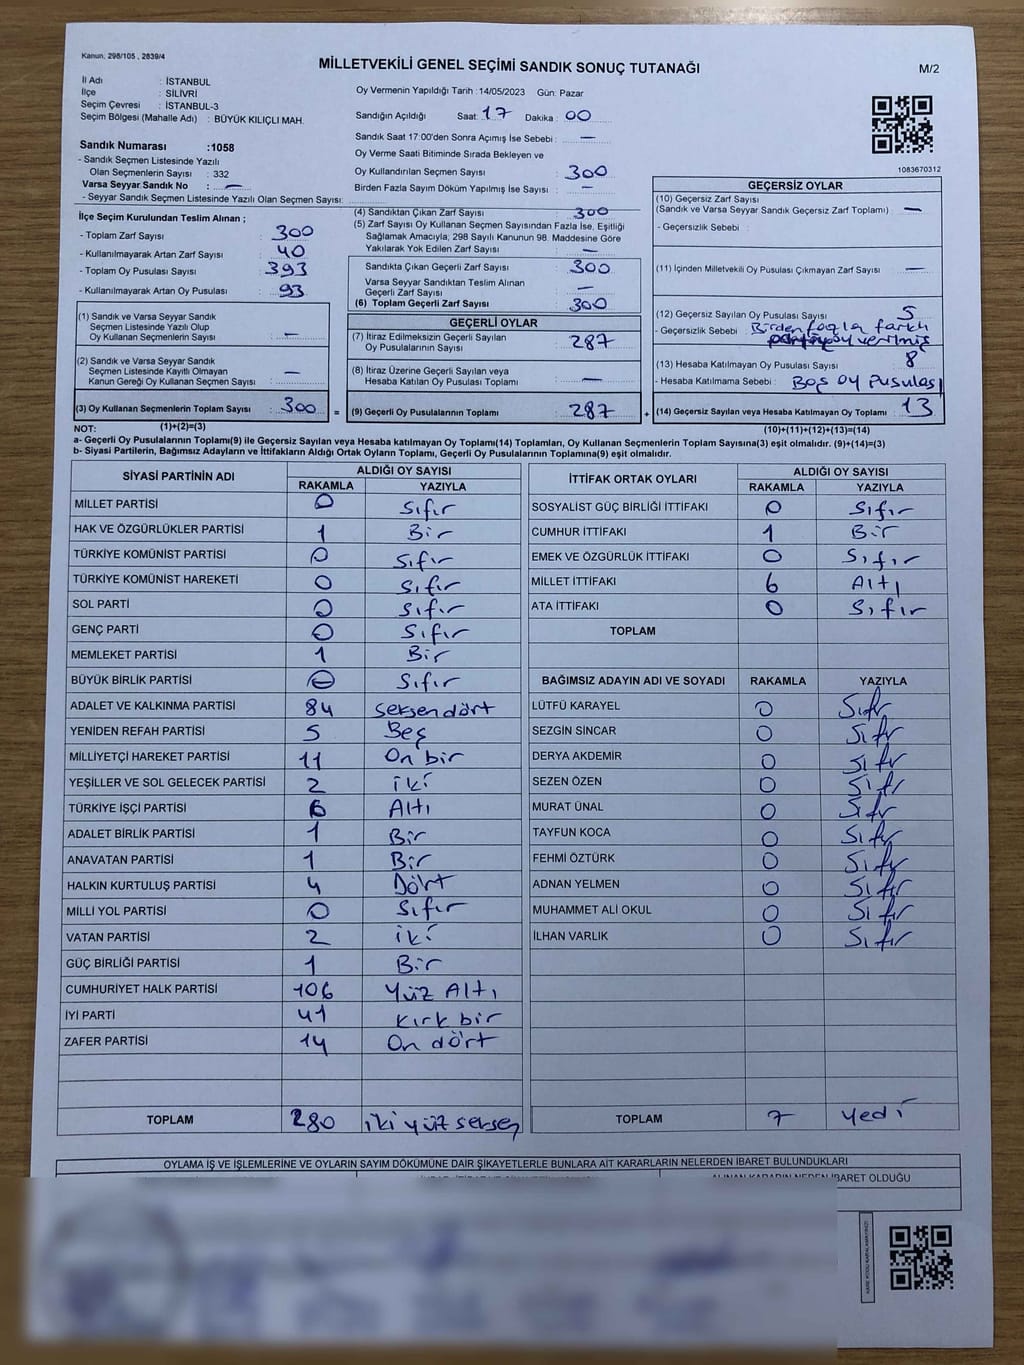 Kanun, 298/105 , 2839/4
MİLLETVEKİLİ GENEL SEÇİMİ SANDIK SONUÇ TUTANAĞI
M/2
İl Adı : İSTANBUL
İlçe : SİLİVRİ
Seçim Çevresi : İSTANBUL-3
Seçim Bölgesi (Mahalle Adı) : BÜYÜK KILIÇLI MAH.
Sandık Numarası :1058
- Sandık Seçmen Listesinde Yazılı
Olan Seçmenlerin Sayısı : 332
Varsa Seyyar Sandık No : —
- Seyyar Sandık Seçmen Listesinde Yazılı Olan Seçmen Sayısı:
İlçe Seçim Kurulundan Teslim Alınan ;
- Toplam Zarf Sayısı : 300
- Kullanılmayarak Artan Zarf Sayısı : 40
- Toplam Oy Pusulası Sayısı : 393
- Kullanılmayarak Artan Oy Pusulası : 93
(1) Sandık ve Varsa Seyyar Sandık
Seçmen Listesinde Yazılı Olup
Oy Kullanan Seçmenlerin Sayısı : —
(2) Sandık ve Varsa Seyyar Sandık
Seçmen Listesinde Kayıtlı Olmayan
Kanun Gereği Oy Kullanan Seçmen Sayısı : —
(3) Oy Kullanan Seçmenlerin Toplam Sayısı : 300 =
(1)+(2)=(3)
Oy Vermenin Yapıldığı Tarih :14/05/2023 Gün: Pazar
Sandığın Açıldığı Saat: 17 Dakika : 00
Sandık Saat 17:00'den Sonra Açımış İse Sebebi : —
Oy Verme Saati Bitiminde Sırada Bekleyen ve
Oy Kullandırılan Seçmen Sayısı : 300
Birden Fazla Sayım Döküm Yapılmış İse Sayısı : —
(4) Sandıktan Çıkan Zarf Sayısı : 300
(5) Zarf Sayısı Oy Kullanan Seçmen Sayısından Fazla İse, Eşitliği
Sağlamak Amacıyla, 298 Sayılı Kanunun 98. Maddesine Göre
Yakılarak Yok Edilen Zarf Sayısı : —
Sandıkta Çıkan Geçerli Zarf Sayısı : 300
Varsa Seyyar Sandıktan Teslim Alınan
Geçerli Zarf Sayısı : —
(6) Toplam Geçerli Zarf Sayısı : 300
GEÇERLİ OYLAR
(7) İtiraz Edilmeksizin Geçerli Sayılan
Oy Pusulalarının Sayısı : 287
(8) İtiraz Üzerine Geçerli Sayılan veya
Hesaba Katılan Oy Pusulası Toplamı : —
(9) Geçerli Oy Pusulalarının Toplamı : 287 +
1083670312
GEÇERSİZ OYLAR
(10) Geçersiz Zarf Sayısı
(Sandık ve Varsa Seyyar Sandık Geçersiz Zarf Toplamı) : —
- Geçersizlik Sebebi :
(11) İçinden Milletvekili Oy Pusulası Çıkmayan Zarf Sayısı : —
(12) Geçersiz Sayılan Oy Pusulası Sayısı : 5
- Geçersizlik Sebebi : Birden fazla farklı
partiye oy verilmiş
(13) Hesaba Katılmayan Oy Pusulası Sayısı : 8
- Hesaba Katılmama Sebebi : Boş Oy Pusulası
(14) Geçersiz Sayılan veya Hesaba Katılmayan Oy Toplamı : 13
(10)+(11)+(12)+(13)=(14)
NOT:
a- Geçerli Oy Pusulalarının Toplamı(9) ile Geçersiz Sayılan veya Hesaba katılmayan Oy Toplamı(14) Toplamları, Oy Kullanan Seçmenlerin Toplam Sayısına(3) eşit olmalıdır. (9)+(14)=(3)
b- Siyasi Partilerin, Bağımsız Adayların ve İttifakların Aldığı Ortak Oyların Toplamı, Geçerli Oy Pusulalarının Toplamına(9) eşit olmalıdır.
SİYASİ PARTİNİN ADI ALDIĞI OY SAYISI
RAKAMLA YAZIYLA
MİLLET PARTİSİ 0 Sıfır
HAK VE ÖZGÜRLÜKLER PARTİSİ 1 Bir
TÜRKİYE KOMÜNİST PARTİSİ 0 Sıfır
TÜRKİYE KOMÜNİST HAREKETİ 0 Sıfır
SOL PARTİ 0 Sıfır
GENÇ PARTİ 0 Sıfır
MEMLEKET PARTİSİ 1 Bir
BÜYÜK BİRLİK PARTİSİ 0 Sıfır
ADALET VE KALKINMA PARTİSİ 84 Seksendört
YENİDEN REFAH PARTİSİ 5 Beş
MİLLİYETÇİ HAREKET PARTİSİ 11 On bir
YEŞİLLER VE SOL GELECEK PARTİSİ 2 iki
TÜRKİYE İŞÇİ PARTİSİ 6 Altı
ADALET BİRLİK PARTİSİ 1 Bir
ANAVATAN PARTİSİ 1 Bir
HALKIN KURTULUŞ PARTİSİ 4 Dört
MİLLİ YOL PARTİSİ 0 Sıfır
VATAN PARTİSİ 2 iki
GÜÇ BİRLİĞİ PARTİSİ 1 Bir
CUMHURİYET HALK PARTİSİ 106 Yüz Altı
İYİ PARTİ 41 kırk bir
ZAFER PARTİSİ 14 On dört
TOPLAM 280 iki yüz seksen
İTTİFAK ORTAK OYLARI ALDIĞI OY SAYISI
RAKAMLA YAZIYLA
SOSYALİST GÜÇ BİRLİĞİ İTTİFAKI 0 Sıfır
CUMHUR İTTİFAKI 1 Bir
EMEK VE ÖZGÜRLÜK İTTİFAKI 0 Sıfır
MİLLET İTTİFAKI 6 Altı
ATA İTTİFAKI 0 Sıfır
TOPLAM
BAĞIMSIZ ADAYIN ADI VE SOYADI RAKAMLA YAZIYLA
LÜTFÜ KARAYEL 0 Sıfır
SEZGİN SİNCAR 0 Sıfır
DERYA AKDEMİR 0 Sıfır
SEZEN ÖZEN 0 Sıfır
MURAT ÜNAL 0 Sıfır
TAYFUN KOCA 0 Sıfır
FEHMİ ÖZTÜRK 0 Sıfır
ADNAN YELMEN 0 Sıfır
MUHAMMET ALİ OKUL 0 Sıfır
İLHAN VARLIK 0 Sıfır
TOPLAM 7 yedi
OYLAMA İŞ VE İŞLEMLERİNE VE OYLARIN SAYIM DÖKÜMÜNE DAİR ŞİKAYETLERLE BUNLARA AİT KARARLARIN NELERDEN İBARET BULUNDUKLARI
ALINAN KARARIN NEDEN İBARET OLDUĞU